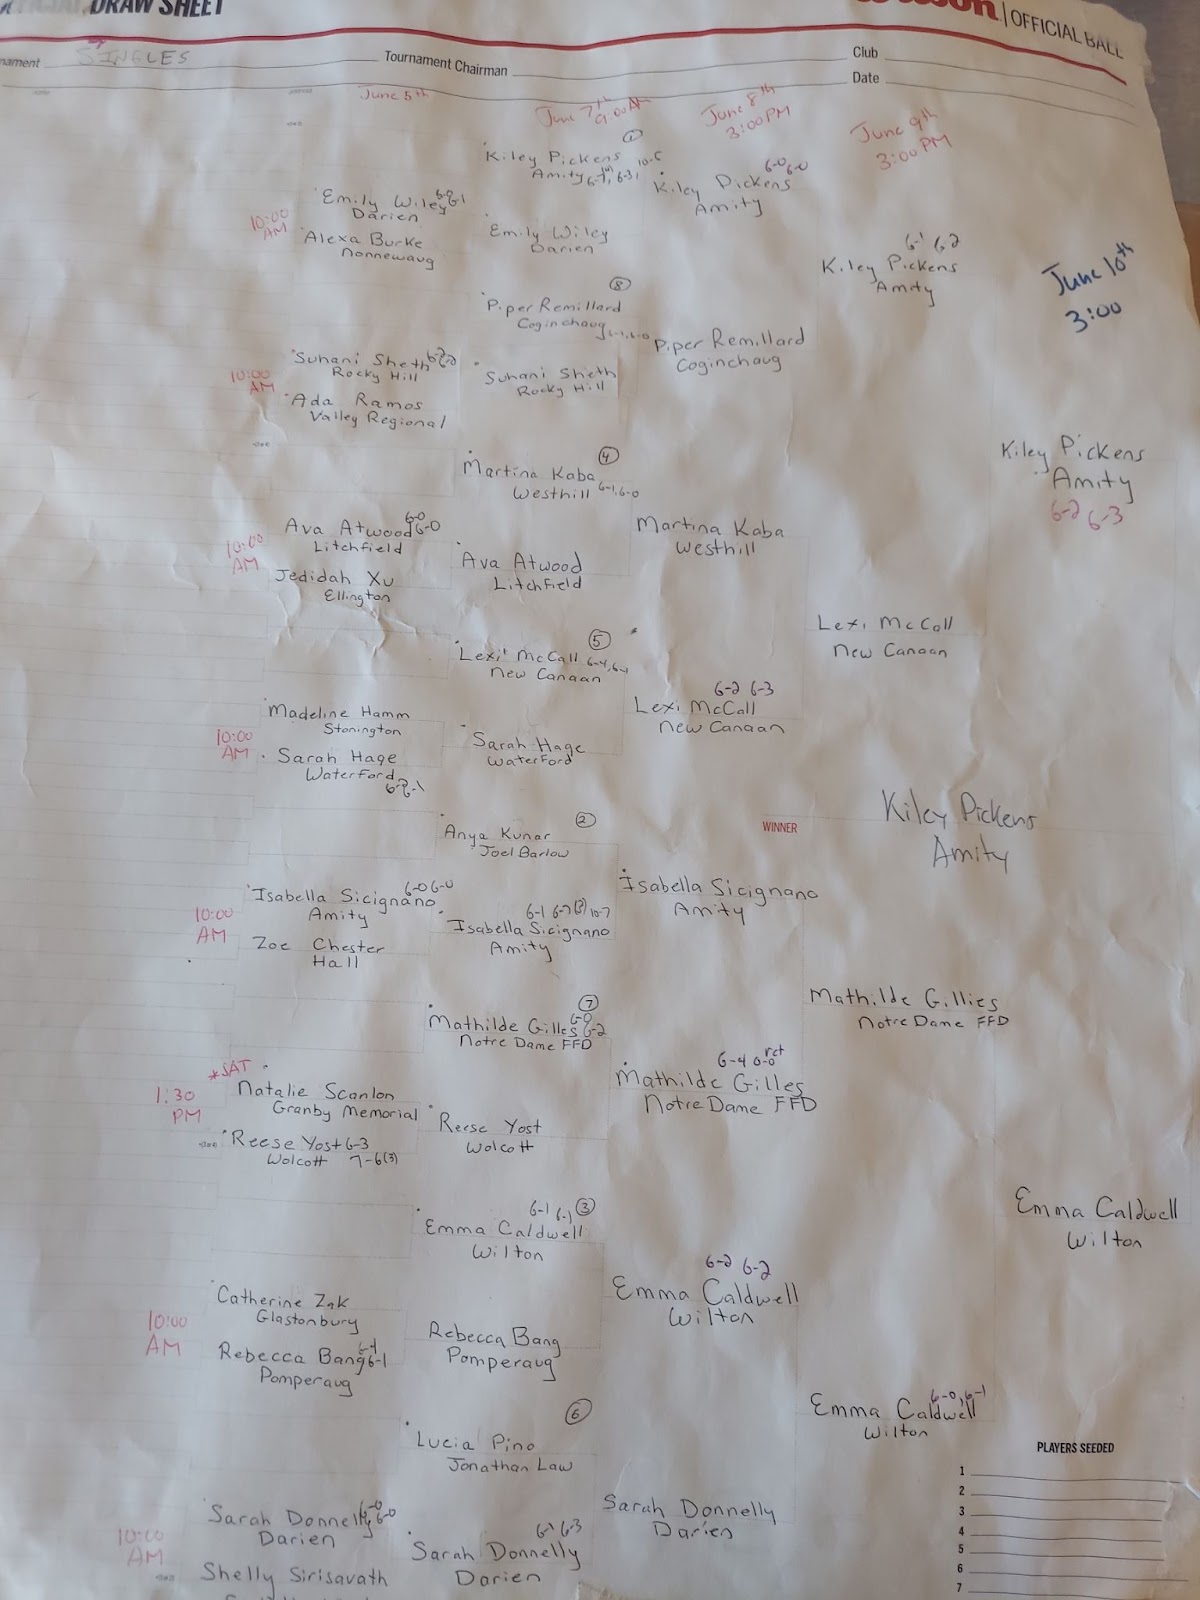 DRAW SHEET
OFFICIAL BALL
SINGLES
Tournament Chairman
Club
Date
June 5th
June 7th
9:00 AM
June 8th
3:00PM
June 9th
3:00 PM
June 10th
3:00
1
Kiley Pickens
Amity
Emily Wiley
Darien
10:00
AM
Alexa Burke
Nonnewaug
Emily Wiley
Darien
8
Piper Remillard
Coginchaug 6-1, 6-0
Suhani Sheth
Rocky Hill
10:00
AM
Ada Ramos
Valley Regional
Suhani Sheth
Rocky Hill
4
Martina Kaba
Westhill 6-1, 6-0
Ava Atwood 6-0 6-0
Litchfield
10:00
AM
Jedidah Xu
Ellington
Ava Atwood
Litchfield
5
Lexi McCall 6-4, 6-1
New Canaan
Madeline Hamm
Stonington
10:00
AM
Sarah Hage
Waterford
Sarah Hage
Waterford
2
Anya Kunar
Joel Barlow
Isabella Sicignano 6-0 6-0
Amity
10:00
AM
Zoe Chester
Hall
6-1 6-7 10-7
Isabella Sicignano
Amity
7
Mathilde Gilles 6-0 6-2
Notre Dame FFD
*SAT
1:30
PM
Natalie Scanlon
Granby Memorial
Reese Yost 6-3
Wolcott 7-6(3)
Reese Yost
Wolcott
6-1 6-1 3
Emma Caldwell
Wilton
Catherine Zak
Glastonbury
10:00
AM
Rebecca Bang 6-1
Pomperaug
Rebecca Bang
Pomperaug
6
Lucia Pino
Jonathan Law
Sarah Donnelly 6-0 6-0
Darien
10:00
AM
Shelly Sirisavath
6-3
Sarah Donnelly
Darien
6-0 6-0
Kiley Pickens
Amity
Piper Remillard
Coginchaug
Martina Kaba
Westhill
6-2 6-3
Lexi McCall
New Canaan
Isabella Sicignano
Amity
6-4 0-0 ret
Mathilde Gilles
Notre Dame FFD
6-2 6-2
Emma Caldwell
Wilton
Sarah Donnelly
Darien
6-1 6-2
Kiley Pickens
Amity
Lexi McCall
New Canaan
Mathilde Gillies
Notre Dame FFD
6-0, 6-1
Emma Caldwell
Wilton
Kiley Pickens
Amity
6-2 6-3
Emma Caldwell
Wilton
WINNER
Kiley Pickens
Amity
PLAYERS SEEDED
1
2
3
4
5
6
7